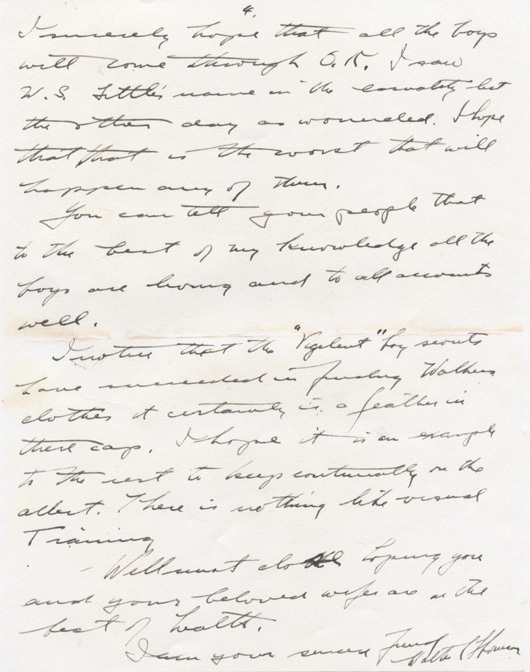 4.
I sincerely hope that all the boys
will come through O.K. I saw
W.S. Little's name in the casualty list
the other day as wounded. I hope
that that is the worst that will
happen any of them.
You can tell your people that
to the best of my knowledge all the
boys are living and to all accounts
well.
I notice that the "Vigilent" boy scouts
have succeeded in finding Walkers
clothes it certainly is a feather in
their cap. I hope it is an example
to the rest to keep continually on the
albert. There is nothing like visual
Training
- Well must close hoping you
and your beloved wife are in the
best of health.
I am your sincere friend